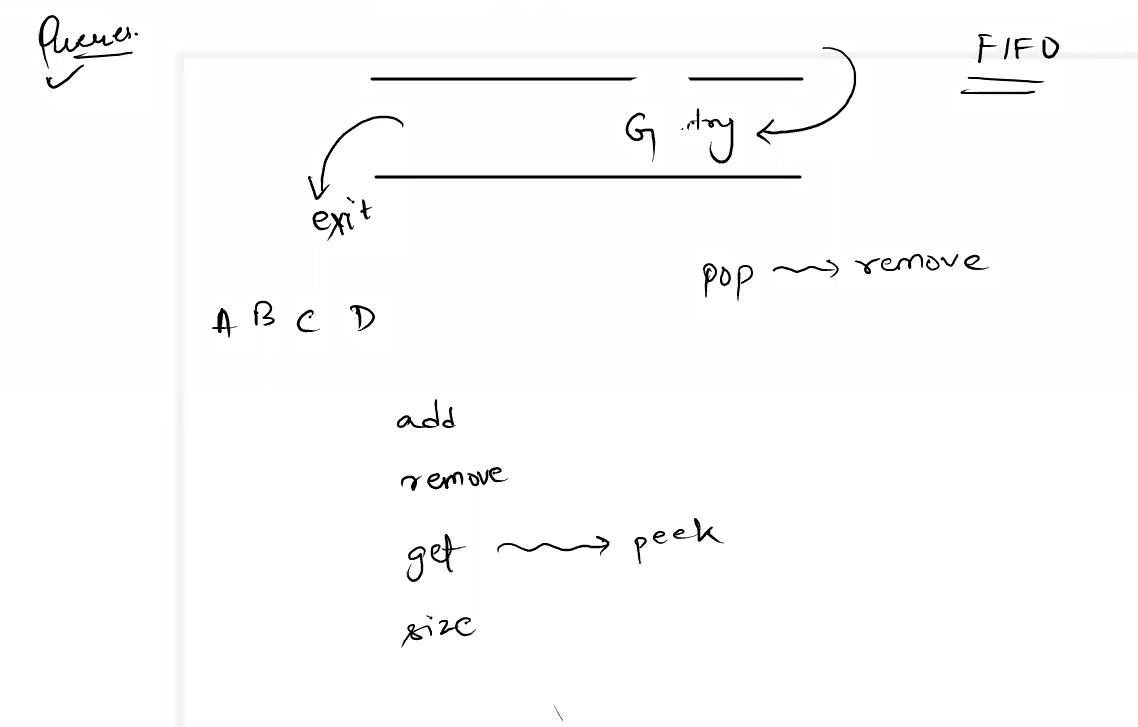 Queues.
FIFO
G
exit
pop → remove
A B C D
add
remove
get → peek
size